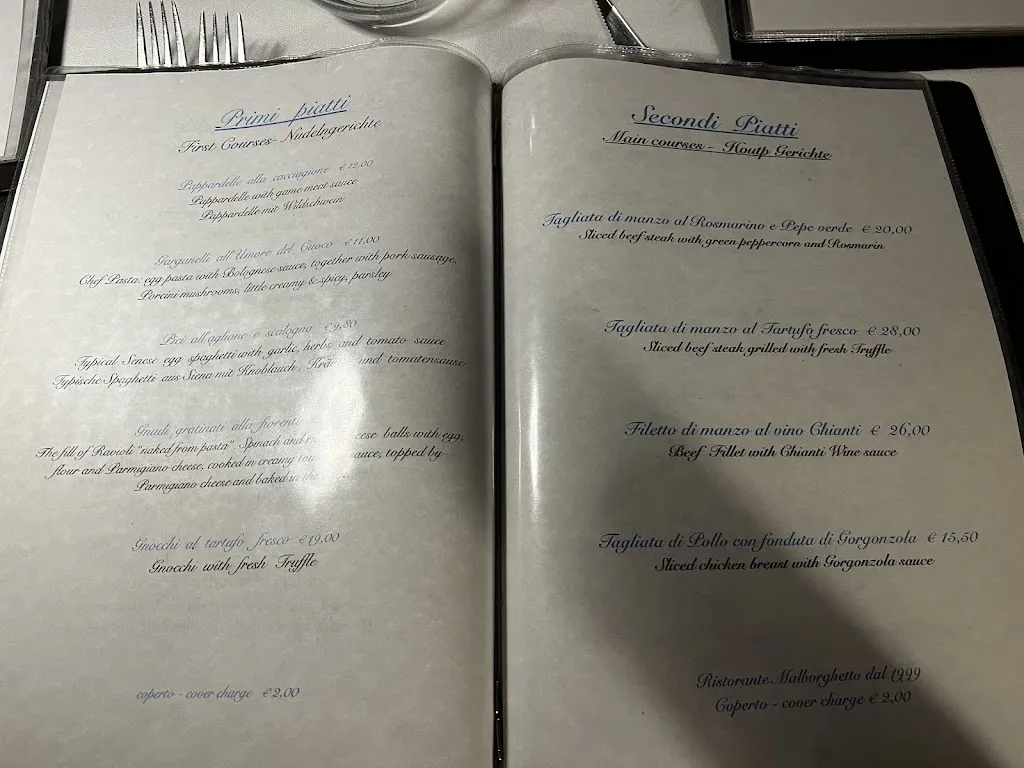 Primi piatti
First Courses- Nudelngerichte
Pappardelle alla cacciagione € 12,00
Pappardelle with game meat sauce
Pappardelle mit Wildschwein
Garganelli all'Umore del Cuoco € 11,00
Chef Pasta: egg pasta with Bolognese sauce, together with pork sausage,
Porcini mushrooms, little creamy & spicy, parsley
Pici all'aglione e scalogno € 9,80
Typical Senese egg spaghetti with garlic, herbs and tomato sauce
Typische Spaghetti aus Siena mit Knoblauch, und tomatensause
Gnudi gratinati alla
The fill of Ravioli "naked from pasta" Spinach and balls with egg,
flour and Parmigiano cheese, cooked in creamy sauce, topped by
Parmigiano cheese and baked in the
Gnocchi al tartufo fresco € 19,00
Gnocchi with fresh Truffle
coperto - cover charge € 2,00
Secondi Piatti
Main courses - Houtp Gerichte
Tagliata di manzo al Rosmarino e Pepe verde € 20,00
Sliced beef steak with green peppercorn and Rosmarin
Tagliata di manzo al Tartufo fresco € 28,00
Sliced beef steak grilled with fresh Truffle
Filetto di manzo al vino Chianti € 26,00
Beef Fillet with Chianti Wine sauce
Tagliata di Pollo con fonduta di Gorgonzola € 15,50
Sliced chicken breast with Gorgonzola sauce
Ristorante Malborghetto dal 1999
Coperto - cover charge € 2,00